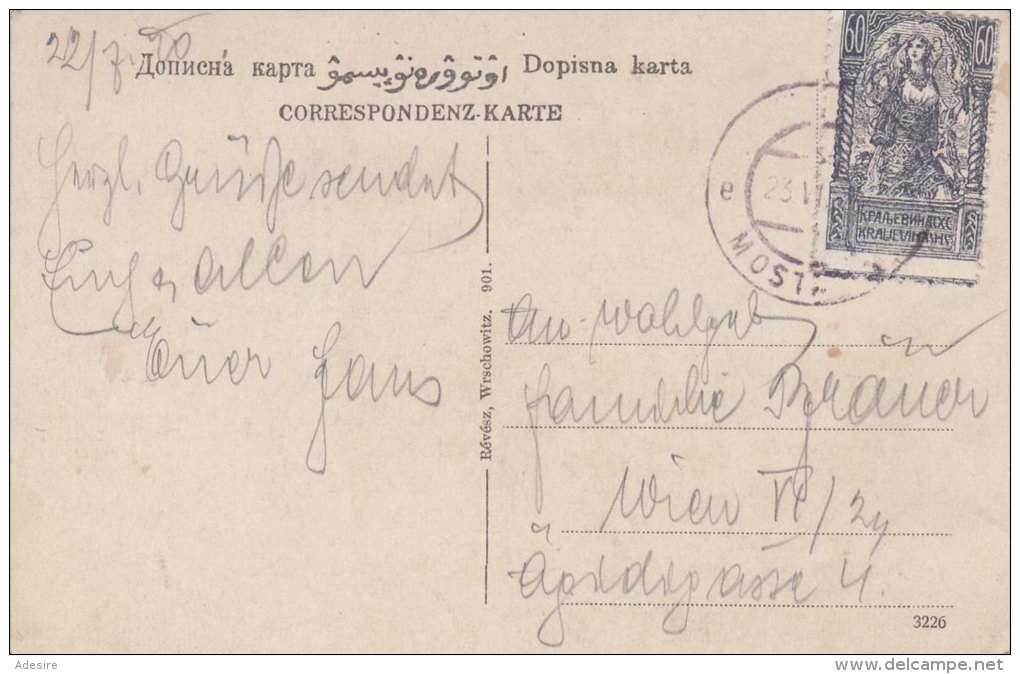 22/7. 20
Дописна́ карта اۋتوۋرەنۋپيسمۋ Dopisna karta
CORRESPONDENZ-KARTE
60 60
КРАЉЕВИНА СХС
KRALJEVINA SHS
23.VI
e MOST
Herzl. Grüße sendet
allen
Euer Hans
Révész, Wrschowitz. 901.
An Wohlgeb
Familie Brauer
Wien VI/24
Ägidigasse 4.
3226
Adesire
delcampe.net